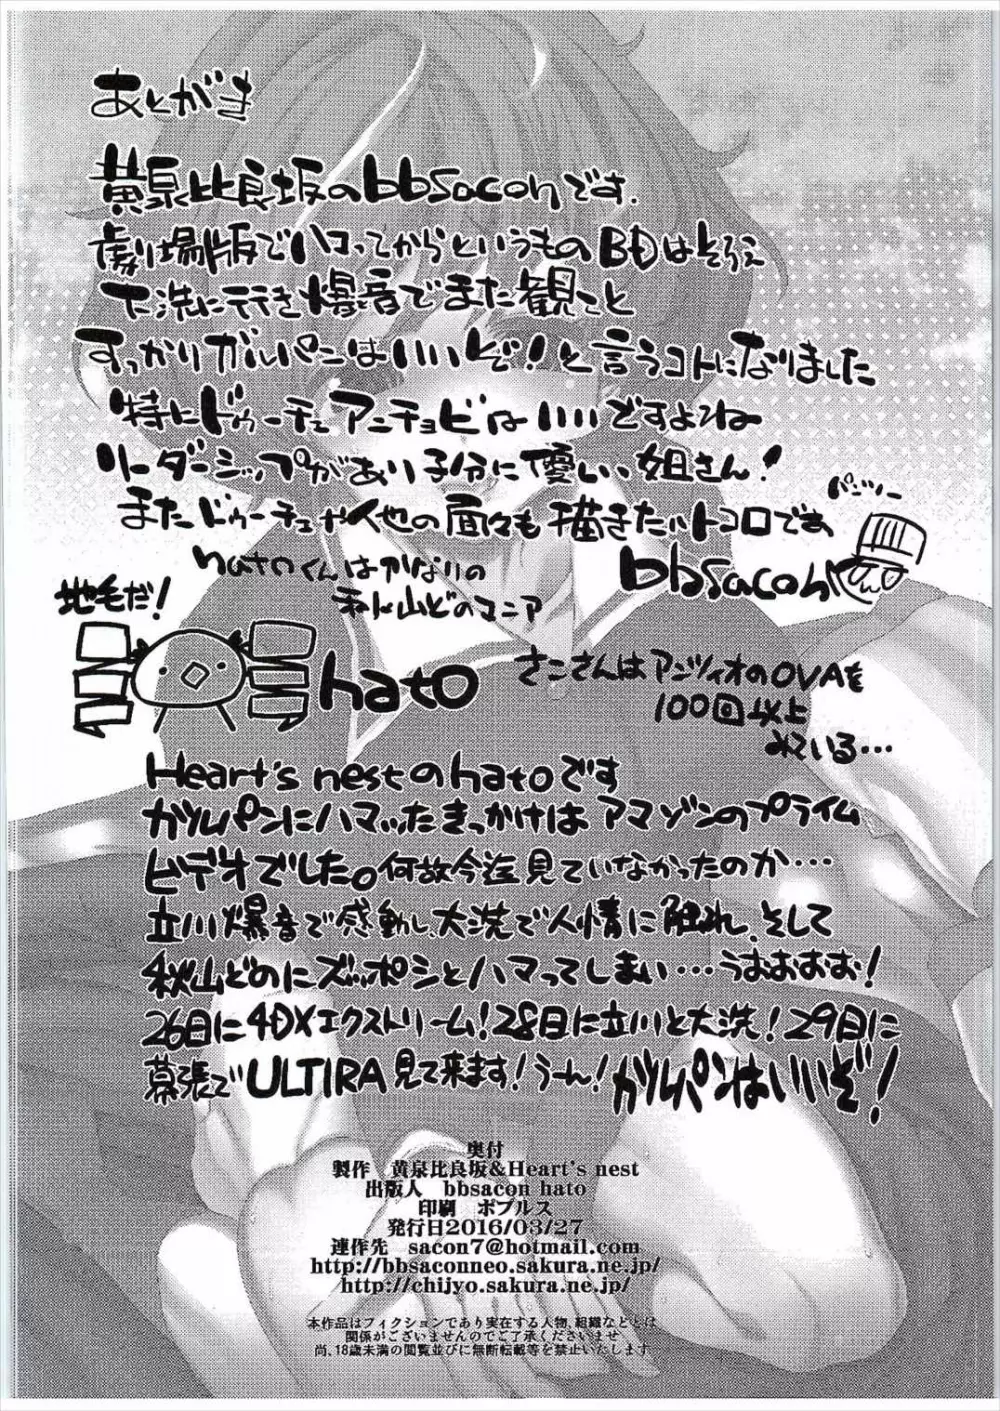 あとがき
黄泉比良坂のbbsaconです.
劇場版でハマってからというものBDはそろえ
大洗に行き爆音でまた観てと
すっかりガルパンはいいぞ!と言うコトになりました
特にドゥーチェアンチョビはいいですよね
リーダーシップがあり子分に優しい姐さん!
またドゥーチェや他の面々も描きたいトコロです
パンツァー
bbsacon
hatoくんはかなりの
秋山どのマニア
地毛だ!
hato
さこさんはアンツィオのOVAを
100回以上
みている…
Heart's nestのhatoです
ガルパンにハマッたきっかけはアマゾンのプライム
ビデオでした。何故今迄見ていなかったのか…
立川爆音で感動し、大洗で人情に触れ、そして
秋山どのにズッポシとハマってしまい…うおおおお!
26日に4DXエクストリーム!28日に立川と大洗!29日に
幕張でULTIRA見て来ます!うーん!ガルパンはいいぞ!
奥付
製作　黄泉比良坂&Heart's nest
出版人　bbsacon hato
印刷　ポプルス
発行日2016/03/27
連作先　sacon7@hotmail.com
http://bbsaconneo.sakura.ne.jp/
http://chijyo.sakura.ne.jp/
本作品はフィクションであり実在する人物、組織などとは
関係がございませんのでご了承くださいませ
尚、18歳未満の閲覧並びに無断転載等を禁止いたします